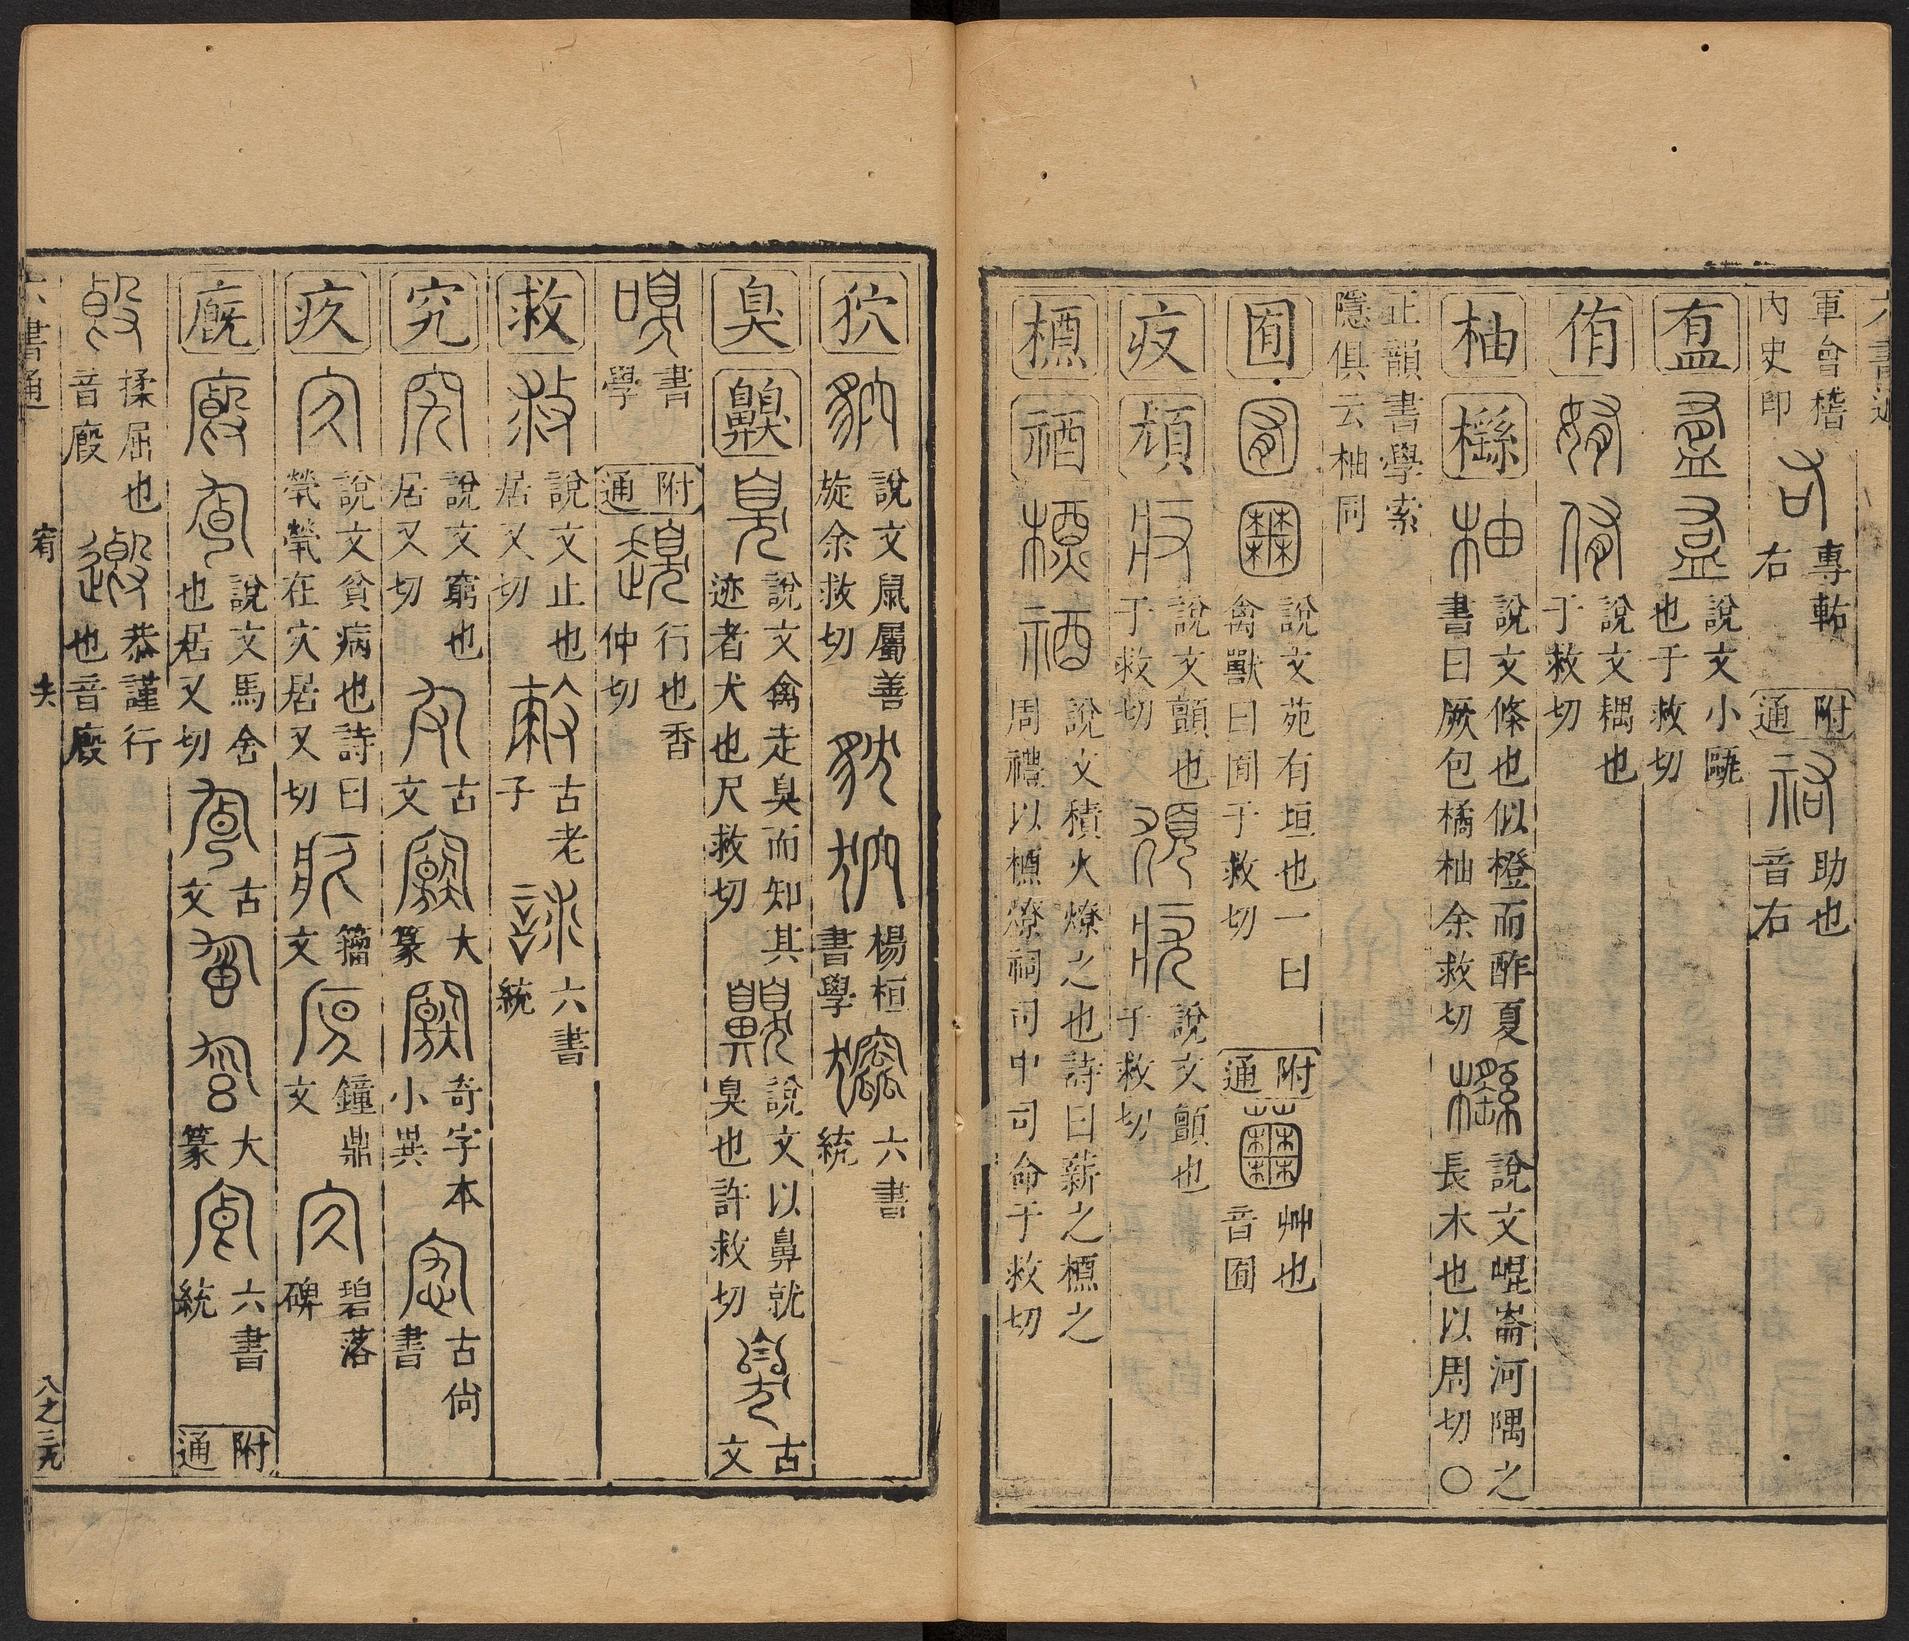 軍會稽
內史印
專帖
右
附通
助也
音右
盍
說文小甌
也于救切
侑
說文耦也
于救切
柚
櫾
說文條也似橙而酢夏
書曰厥包橘柚余救切
說文崐崙河隅之
長木也以周切〇
正韻書學索
隱俱云柚同
囿
說文苑有垣也一曰
禽獸曰囿于救切
附通
艸也
音囿
疫
頄
說文顫也
于救切
說文顫也
于救切
槱
禉
說文積火燎之也詩曰薪之槱之
周禮以槱燎祠司中司命于救切
狖
說文鼠屬善
旋余救切
楊桓
書學
六書
統
臭
齅
說文禽走臭而知其
迹者犬也尺救切
說文以鼻就
臭也許救切
古文
嗅
書學
附通
行也香
仲切
救
說文止也
居又切
古老
子
六書
統
究
說文窮也
居又切
古文
大篆
奇字本
小異
古尙
書
疚
說文貧病也詩曰
煢煢在疚居又切
籀文
鐘鼎
文
碧落
碑
廐
說文馬舍
也居又切
古文
大篆
六書
統
附通
揉屈也
音廄
恭謹行
也音廄
六書通
宥
八之三九